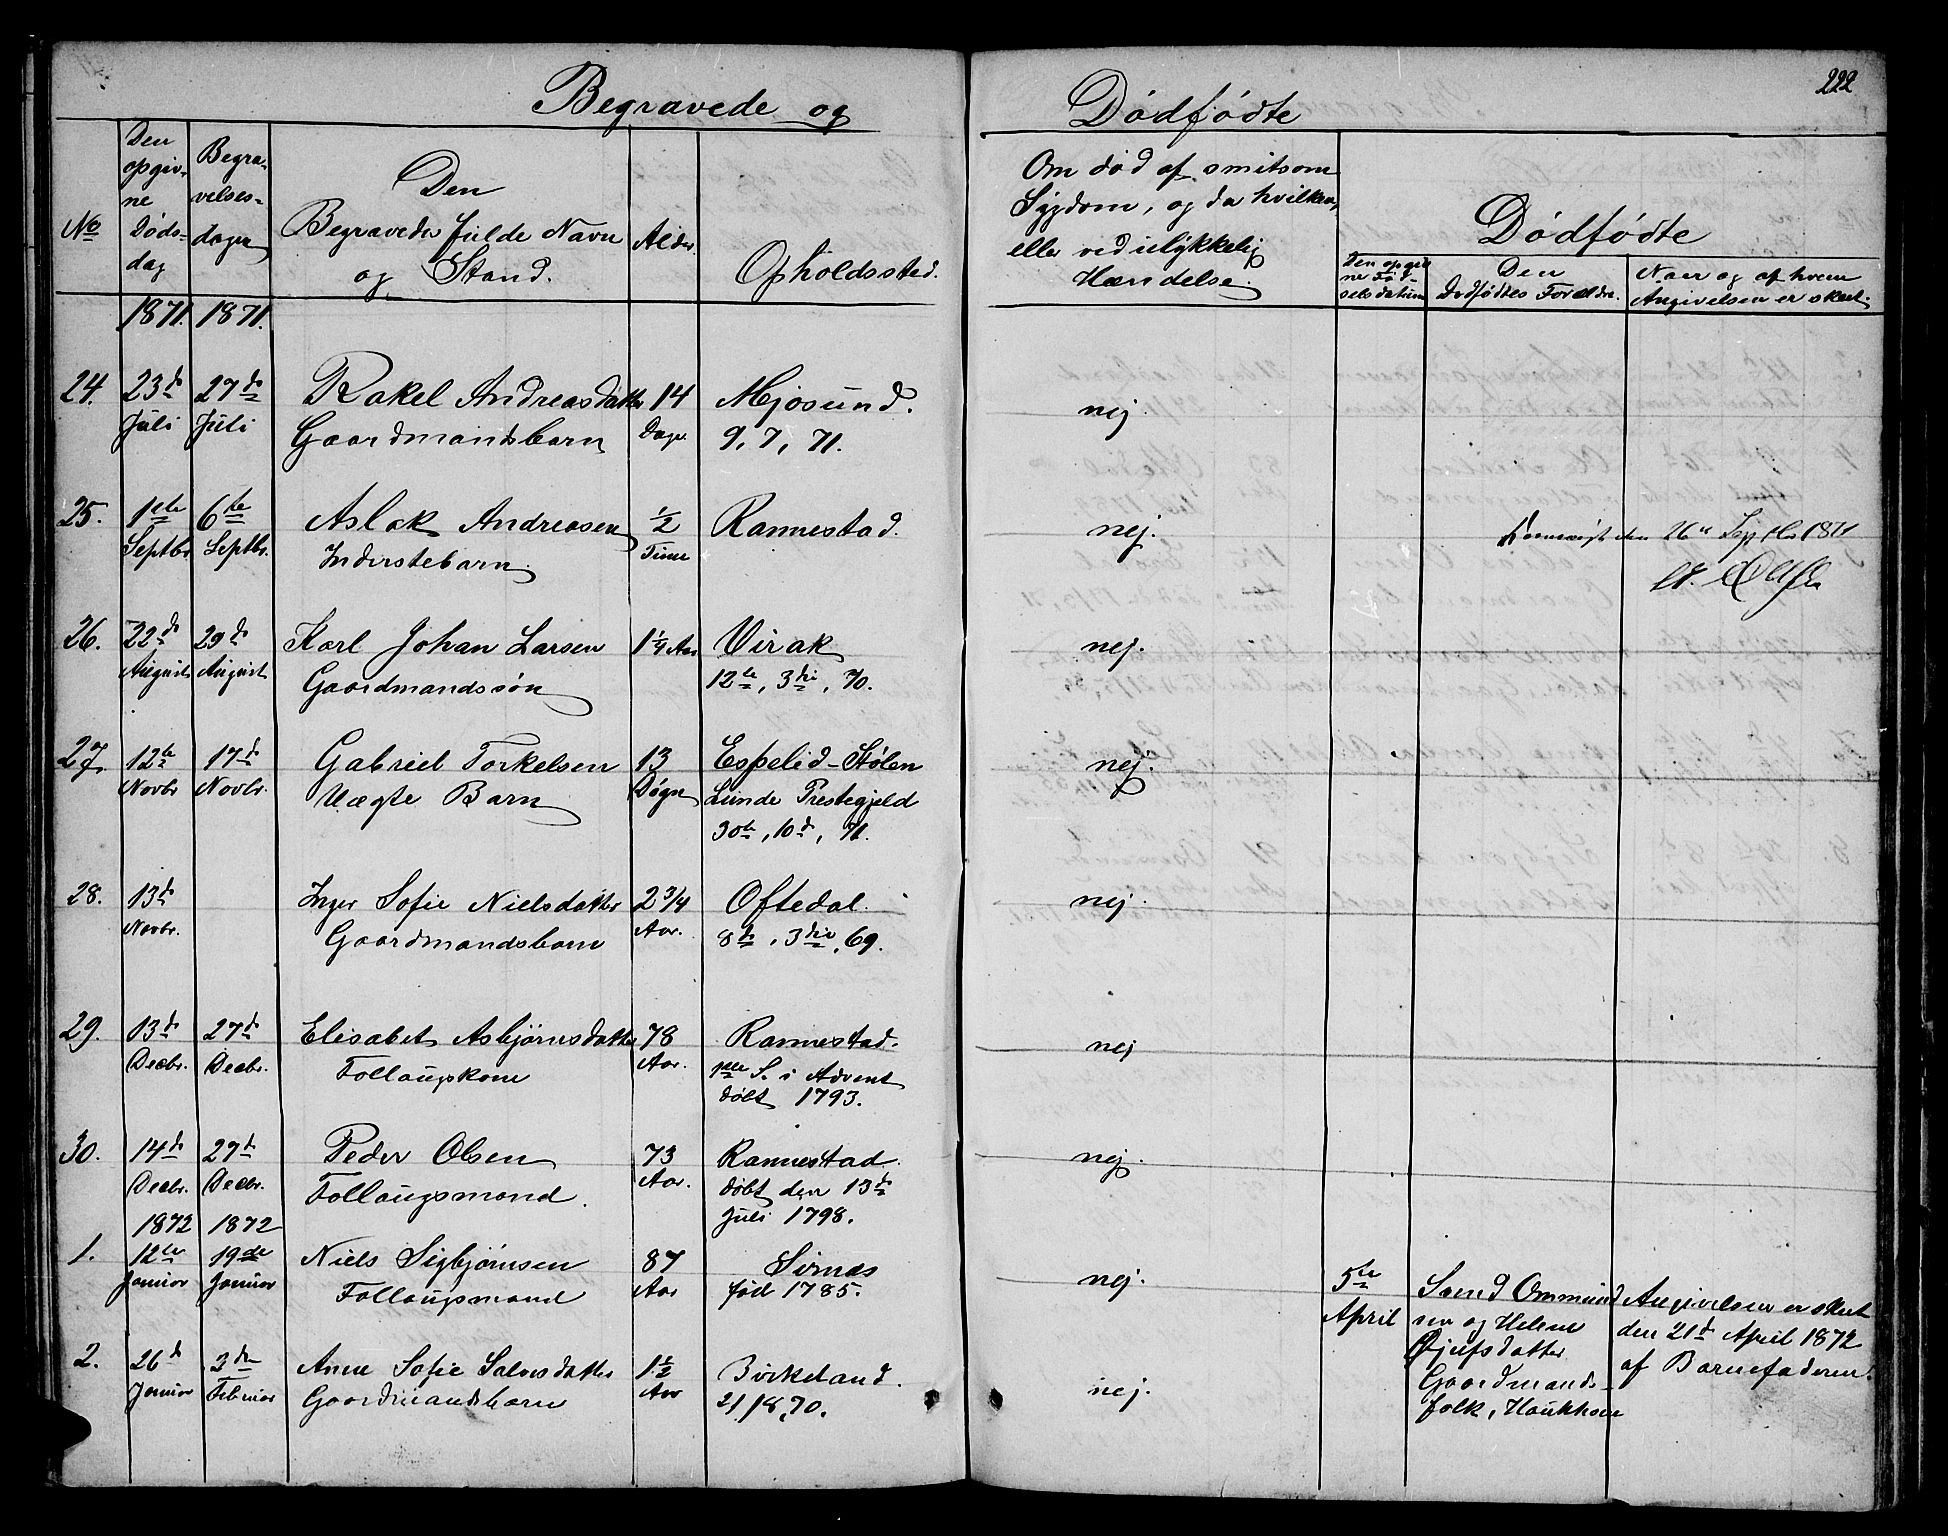 222
Begravede og Dödfödte
No
Den opgivne Døds-dag
Begravelses-dagen
Den Begravedes fulde Navn og Stand.
Alder
Opholdssted.
Om död af smitsom Sygdom, og da hvilken, eller ved ulykkelig Hændelse.
Dödfödte
Den opgivne Fødselsdatum
Den Dødfødtes Forældre.
Naar og af hvem Angivelsen er skeet.
1871. 1871.
24. 23de 27de Rakel Andreasdatter 14 Mjosund. nej.
Juli Juli Gaardmandsbarn Dage 9, 7, 71.
25. 1ste 6te Aslak Andreasen 1/2 Rannestad. nej. den 26de Septbr 1871
Septbr. Septbr. Inderstebarn Time
26. 22de 29de Karl Johan Larsen 1 1/4 Aar Virak nej.
August August Gaardmandssön 12te, 3die, 70.
27. 12te 17de Gabriel Torkelsen 13 Espelid-Stølen nej.
Novbr Novbr. Uægte Barn Døgn Lunde Prestegjeld
30te, 10de, 71.
28. 13de Inger Sofie Nielsdatter 2 3/4 Oftedal. nej.
Novbr. Gaardmandsbarn Aar. 8de, 3die, 69.
29. 13de 27de Elisabet Asbjörnsdatter 78 Rannestad. nej
Decbr. Decbr. Follougskone Aar. 1ste S. i Advent
döbt 1793.
30. 14de 27de Peder Olsen 73 Rannestad. nej.
Decbr. Decbr. Follougsmand. Aar. döbt den 13de
1872 1872 Juli 1798.
1. 12te 19de Niels Sigbjörnsen 87 Sirnes nej.
Januar Januar Follougsmand Aar född 1785.
5te April
Svend Ommund
sen og Helene
Gaardmands-
folk, Haukhom
Angivelsen er skeet
den 21de April 1872
af Barnefaderen.
2. 26de 3die Anne Sofie Salvesdatter 1 1/2 Birkeland. nej.
Januar Februar Gaardmandsbarn Aar 21/8, 70.